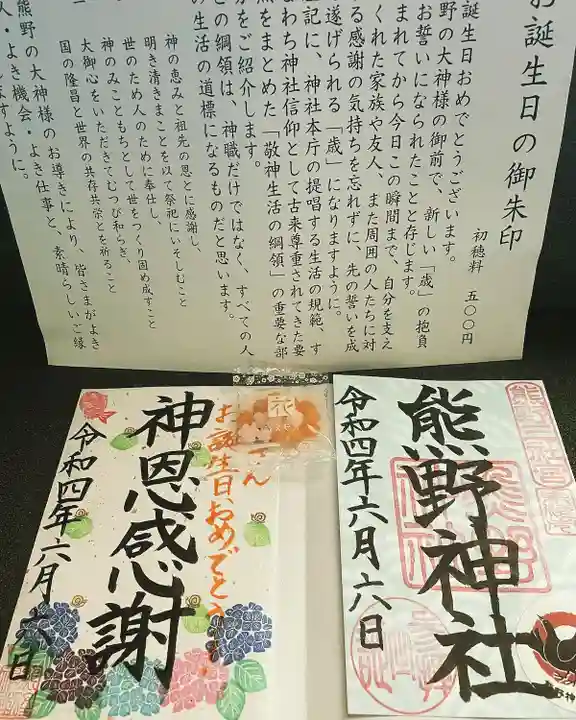 お誕生日の御朱印
初穂料 五〇〇円
誕生日おめでとうございます。
野の大神様の御前で、新しい「歳」の抱負
お誓いになられたことと存じます。
まれてから今日この瞬間まで、自分を支え
くれた家族や友人、また周囲の人たちに対
る感謝の気持ちを忘れずに、先の誓いを成
遂げられる「歳」になりますように。
記に、神社本庁の提唱する生活の規範、す
わち神社信仰として古来尊重されてきた要
点をまとめた「敬神生活の綱領」の重要な部
をご紹介します。
の綱領は、神職だけではなく、すべての人
の生活の道標になるものだと思います。
神の恵みと祖先の恩とに感謝し、
明き清きまことを以て祭祀にいそしむこと
世のため人のために奉仕し、
神のみこともちとして世をつくり固め成すこと
大御心をいただきてむつび和らぎ、
国の隆昌と世界の共存共栄とを祈ること
熊野の大神様のお導きにより、皆さまがよき
人・よき機会・よき仕事と、素晴らしいご縁
ますように。
花
熊野神社
令和四年六月六日
さん
お誕生日おめでとう
神恩感謝
令和四年六月六日